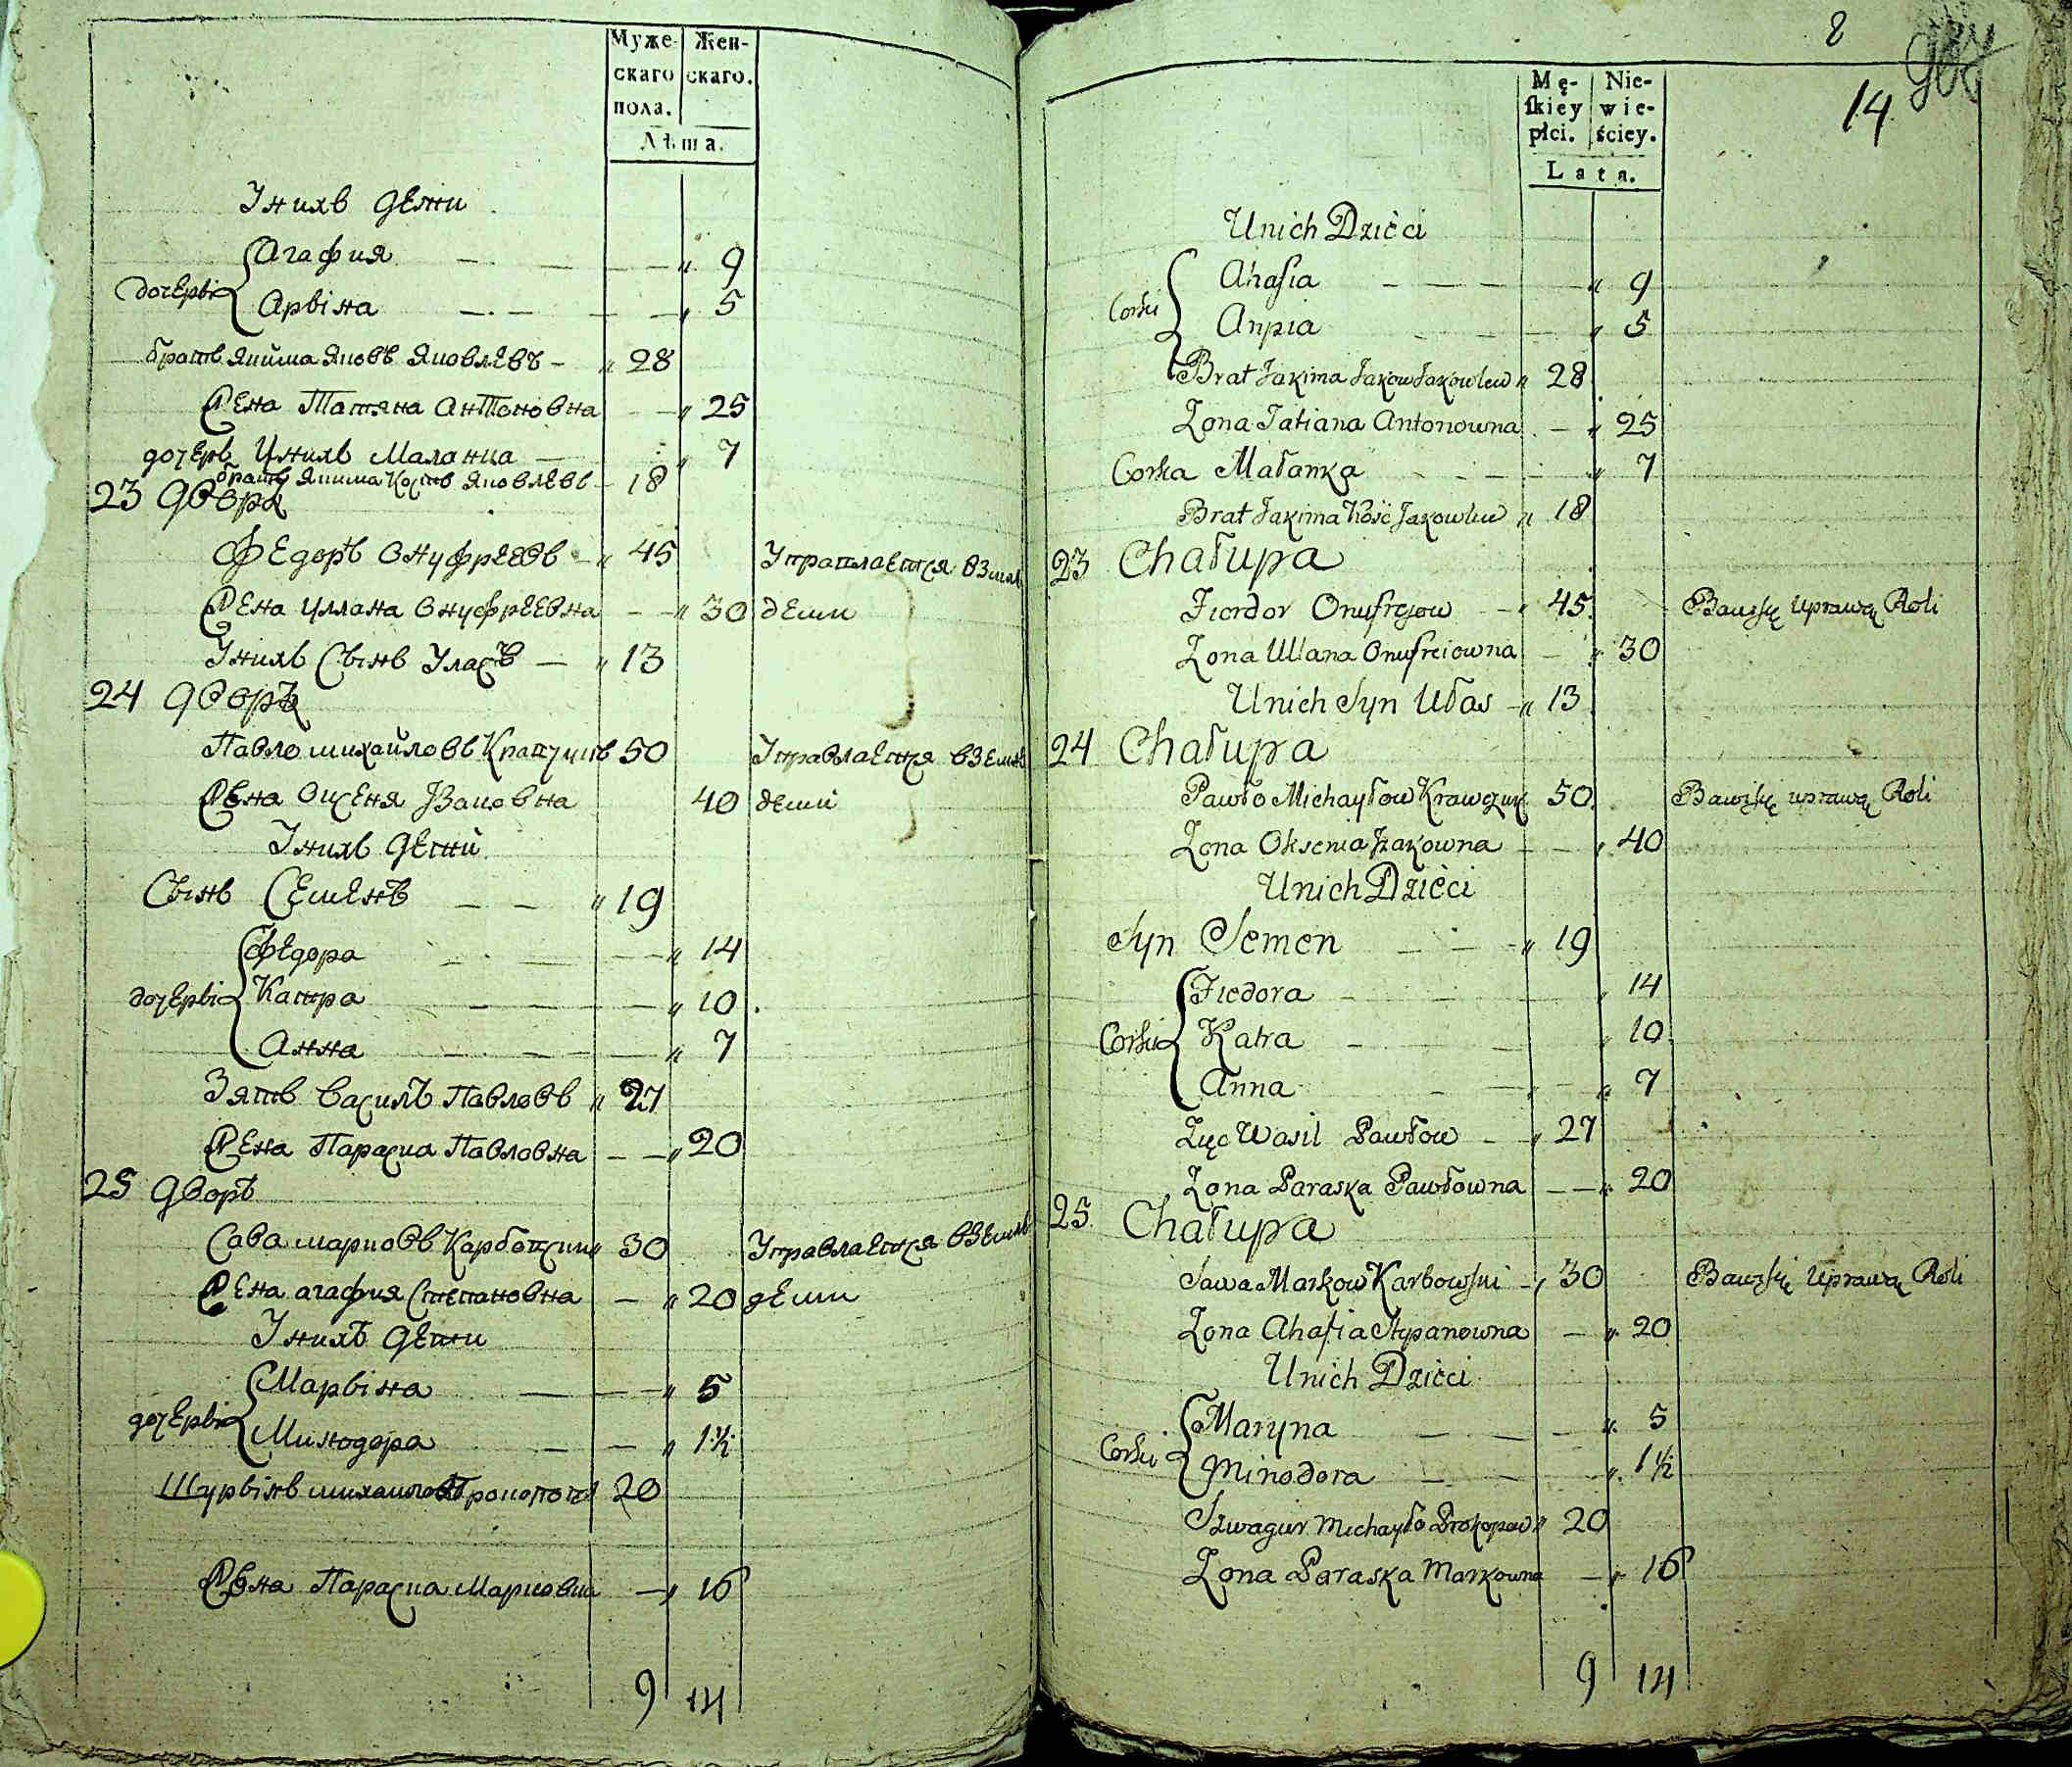 Муже- Жен-
скаго скаго.
пола.
Лѣта.
Унихъ дети
дочерѣ Агафия 9
Арвіна 5
братъ Якима Яковъ Яковлевъ 28
Жена Татяна Антоновна 25
дочеръ Унихъ Маланка 7
братъ Якима Костъ Яковлевъ 18
23 дворъ
Федоръ Онуфреевъ 45 Управлается вземле
Жена Улляна Онуфреевна 30 делии
Унихъ Сынъ Уласъ 13
24 дворъ
Павло михайловъ Кравчукъ 50 Управлается вземле
Жена Оксеня Яковна 40 делии
Унихъ дети
Сынъ Семенъ 19
дочерѣ Федора 14
Катра 10
Анна 7
Зять Василъ Павловъ 27
Жена Параска Павловна 20
25 дворъ
Сава марковъ Карбовски 30 Управлается вземле
Жена агафия Степановна 20 делии
Унихъ дети
дочерѣ Марвіна 5
Минодора 1½
Шурвінъ михаило Прокопов 20
Жена Параска Марковна 16
9 14
8
14
Mę- Nie-
skiey wie-
płci. ściey.
Lata.
Unich Dzieci
Corki Ahafia 9
Anpia 5
Brat Jakima Jakow Jakowlew 28
Zona Tatiana Antonowna 25
Corka Małanka 7
Brat Jakima Kość Jakowlew 18
23 Chałupa
Fiordor Onufrejow 45 Bawi się uprawą Roli
Zona Ullana Onufreiowna 30
Unich Syn Ułas 13
24 Chałupa
Pawło Michayłow Krawczuk 50 Bawi się uprawą Roli
Zona Oksenia Jzakowna 40
Unich Dzieci
Syn Semen 19
Corki Fiedora 14
Katra 10
Anna 7
Zięc Wasil Pawłow 27
Zona Paraska Pawłowna 20
25 Chałupa
Sawa Markow Karbowski 30 Bawi się uprawą Roli
Zona Ahafia Stypanowna 20
Unich Dzieci
Corki Maryna 5
Minodora 1½
Szwagier Michayło Prokopow 20
Zona Paraska Markowna 16
9 14